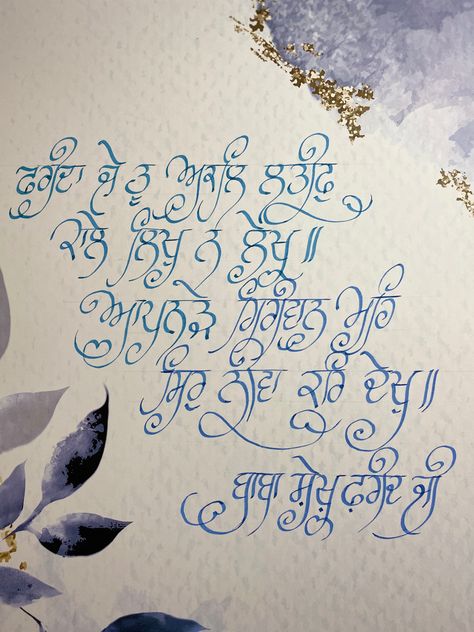 ਫਰੀਦਾ ਜੇ ਤੂ ਅਕਲਿ ਲਤੀਫੁ
ਕਾਲੇ ਲਿਖੁ ਨ ਲੇਖੁ ॥
ਆਪਨੜੇ ਗਿਰੀਵਾਨ ਮਹਿ
ਸਿਰੁ ਨੀਂਵਾ ਕਰਿ ਦੇਖੁ ॥
ਬਾਬਾ ਸ਼ੇਖ਼ ਫ਼ਰੀਦ ਜੀ